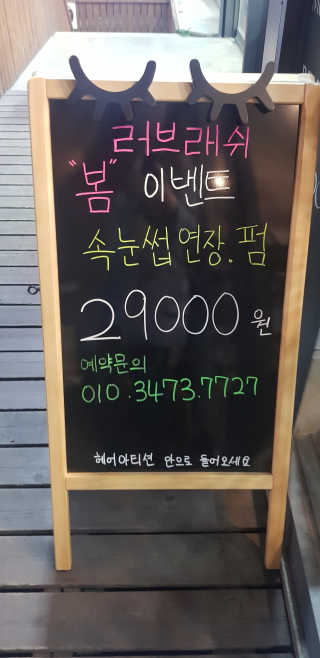 러브래쉬
"봄" 이벤트
속눈썹 연장.펌
29000원
예약문의
010.3473.7727
헤어아티션 안으로 들어오세요